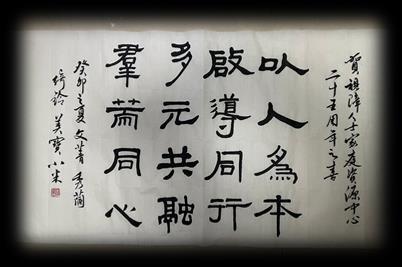 賀視障人士家庭資源中心
二十五周年之喜
以人為本
啟導同行
多元共融
羣策同心
癸卯之夏 文菁 秀蘭
美寶 小米